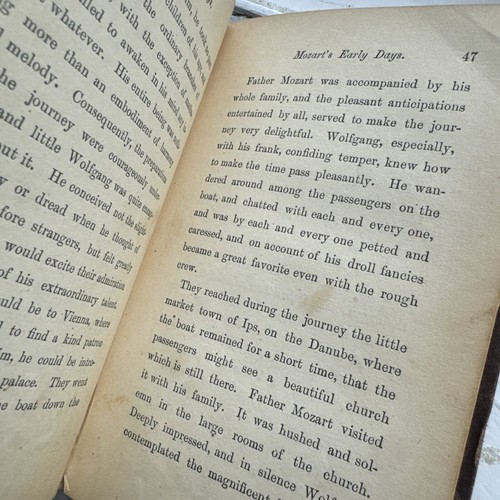 played to
children of his
the ordinary beautiful
with the exception of music
failed to awaken in his mind any
whatever. His entire being was noth-
ing more than an embodiment of harmony
melody. Consequently, the preparations
the journey were courageously under-
and little Wolfgang was quite
out it. He conceived not the slight-
or dread when he thought of
fore strangers, but felt greatly
would excite their admiration
of his extraordinary talent.
ould be to Vienna, where
to find a kind patron
im, he could be intro-
palace. They went
e boat down the
Mozart's Early Days. 47
Father Mozart was accompanied by his
whole family, and the pleasant anticipations
entertained by all, served to make the jour-
ney very delightful. Wolfgang, especially,
with his frank, confiding temper, knew how
to make the time pass pleasantly. He wan-
dered around among the passengers on the
boat, and chatted with each and every one,
and was by each and every one petted and
caressed, and on account of his droll fancies
became a great favorite even with the rough
crew.
They reached during the journey the little
market town of Ips, on the Danube, where
the boat remained for a short time, that the
passengers might see a beautiful church
which is still there. Father Mozart visited
it with his family. It was hushed and sol-
emn in the large rooms of the church.
Deeply impressed, and in silence Wolf-
contemplated the magnificent